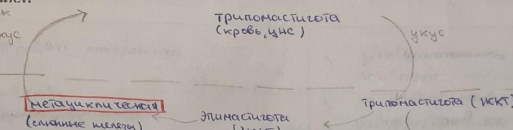 трипомастигота
(кровь, цнс)
укус
метациклическая
(слюнные железы)
эпимастиготы
трипомастигота (жкт)